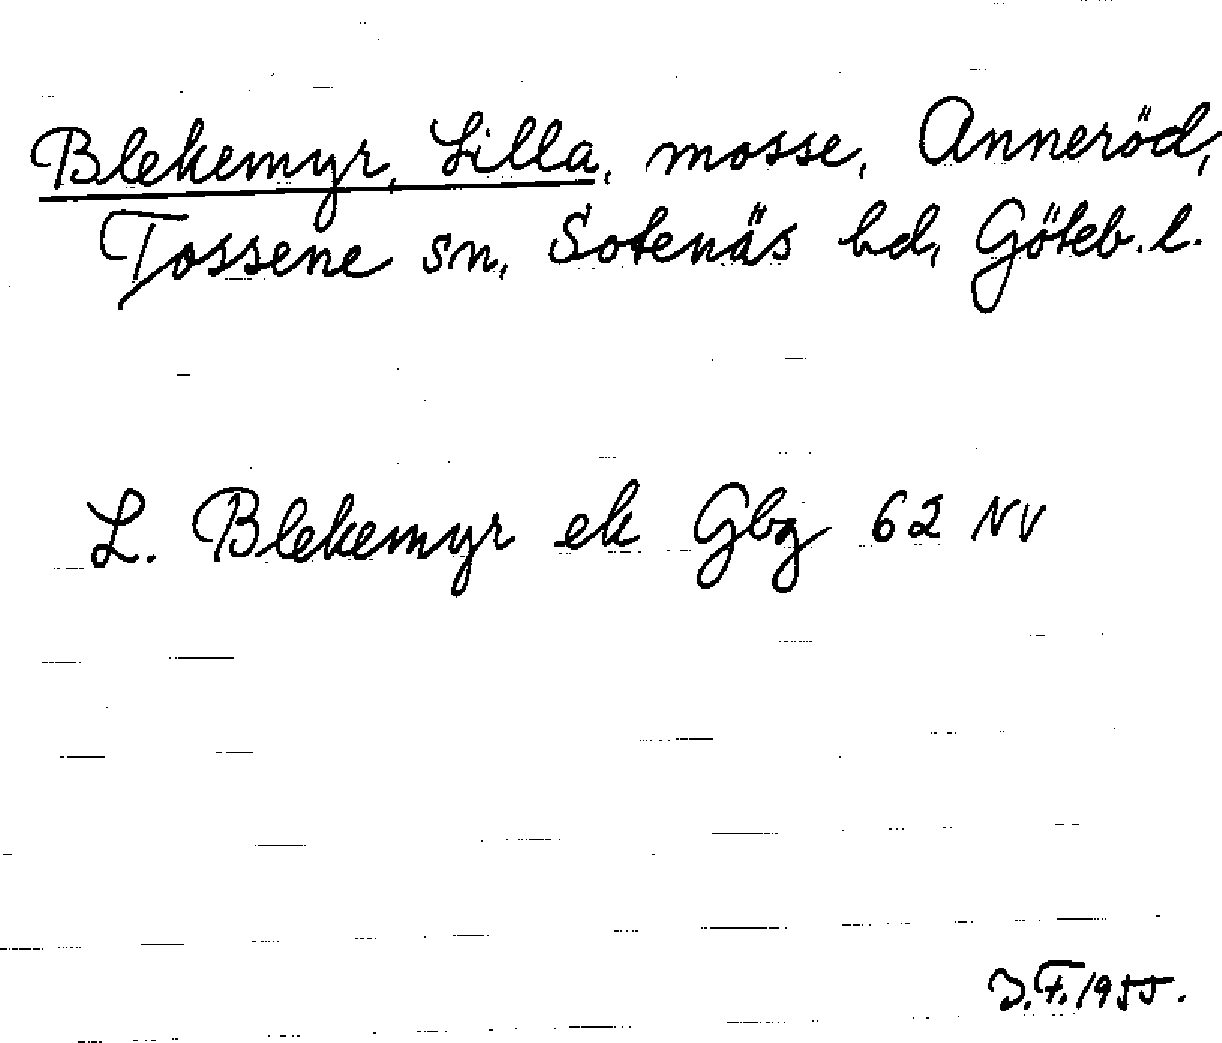 Blekemyr, Lilla, mosse, Anneröd,
Tossene sn, Sotenäs hd, Göteb. l.
L. Blekemyr ek Gbg 62 NV
J.F. 1955.